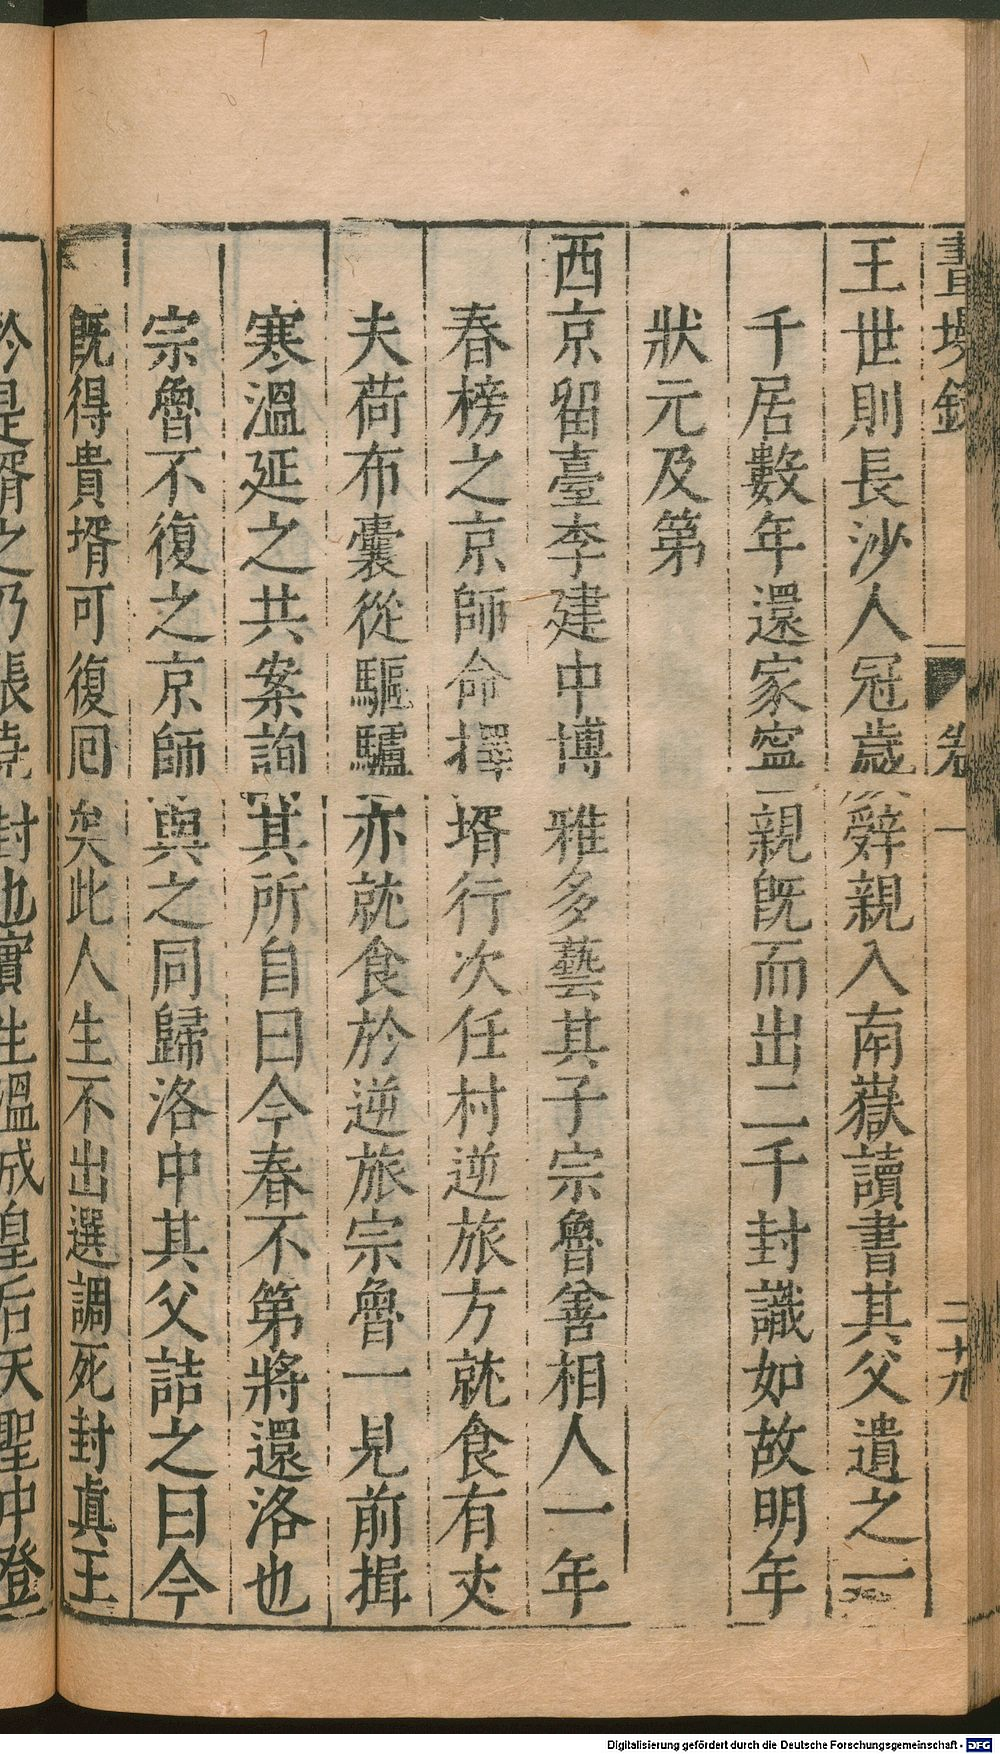 畫墁錄 卷一 二十九
王世則長沙人冠歲辭親入南嶽讀書其父遺之二
千居數年還家寧親既而出二千封識如故明年
狀元及第
西京留臺李建中博雅多藝其子宗魯善相人一年
春榜之京師命擇壻行次任村逆旅方就食有丈
夫荷布囊從驅驢亦就食於逆旅宗魯一見前揖
寒溫延之共案詢其所自曰今春不第將還洛也
宗魯不復之京師與之同歸洛中其父詰之曰今
既得貴壻可復囘矣此人生不出選調死封眞王
於是壻之乃張堯封也實生溫成皇后天聖中登
Digitalisierung gefördert durch die Deutsche Forschungsgemeinschaft - DFG